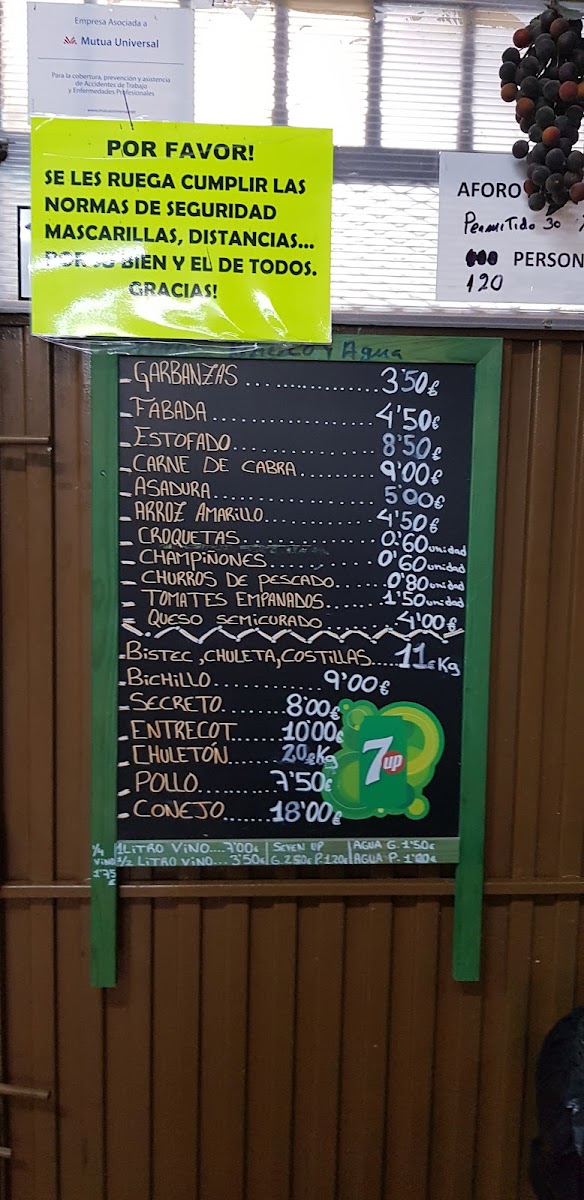 Empresa Asociada a
Mutua Universal
Para la cobertura, prevención y asistencia
de Accidentes de Trabajo
y Enfermedades Profesionales
POR FAVOR!
SE LES RUEGA CUMPLIR LAS
NORMAS DE SEGURIDAD
MASCARILLAS, DISTANCIAS...
POR SU BIEN Y EL DE TODOS.
GRACIAS!
AFORO
Permitido 30
PERSON
120
y Agua
- GARBANZAS ................ 3'50€
- FABADA .................. 4'50€
- ESTOFADO ................ 8'50€
- CARNE DE CABRA ......... 9'00€
- ASADURA ................. 5'00€
- ARROZ AMARILLO .......... 4'50€
- CROQUETAS ............... 0'60 unidad
- CHAMPIÑONES ............. 0'60 unidad
- CHURROS DE PESCADO ...... 0'80 unidad
- TOMATES EMPANADOS ....... 1'50 unidad
- QUESO SEMICURADO ........ 4'00€
- BISTEC, CHULETA, COSTILLAS.... 11€Kg
- BICHILLO ............ 9'00€
- SECRETO ....... 8'00€
- ENTRECOT ...... 10'00€
- CHULETÓN ...... 20€Kg
- POLLO ........ 7'50€
- CONEJO ...... 18'00€
7up
1/4 VINO 1'75 €
1 LITRO VINO....7'00€ | SEVEN UP | AGUA G. 1'50€
1/2 LITRO VINO.... 3'50€ | G. 2'50€ P. 1'20€ | AGUA P. 1'00€